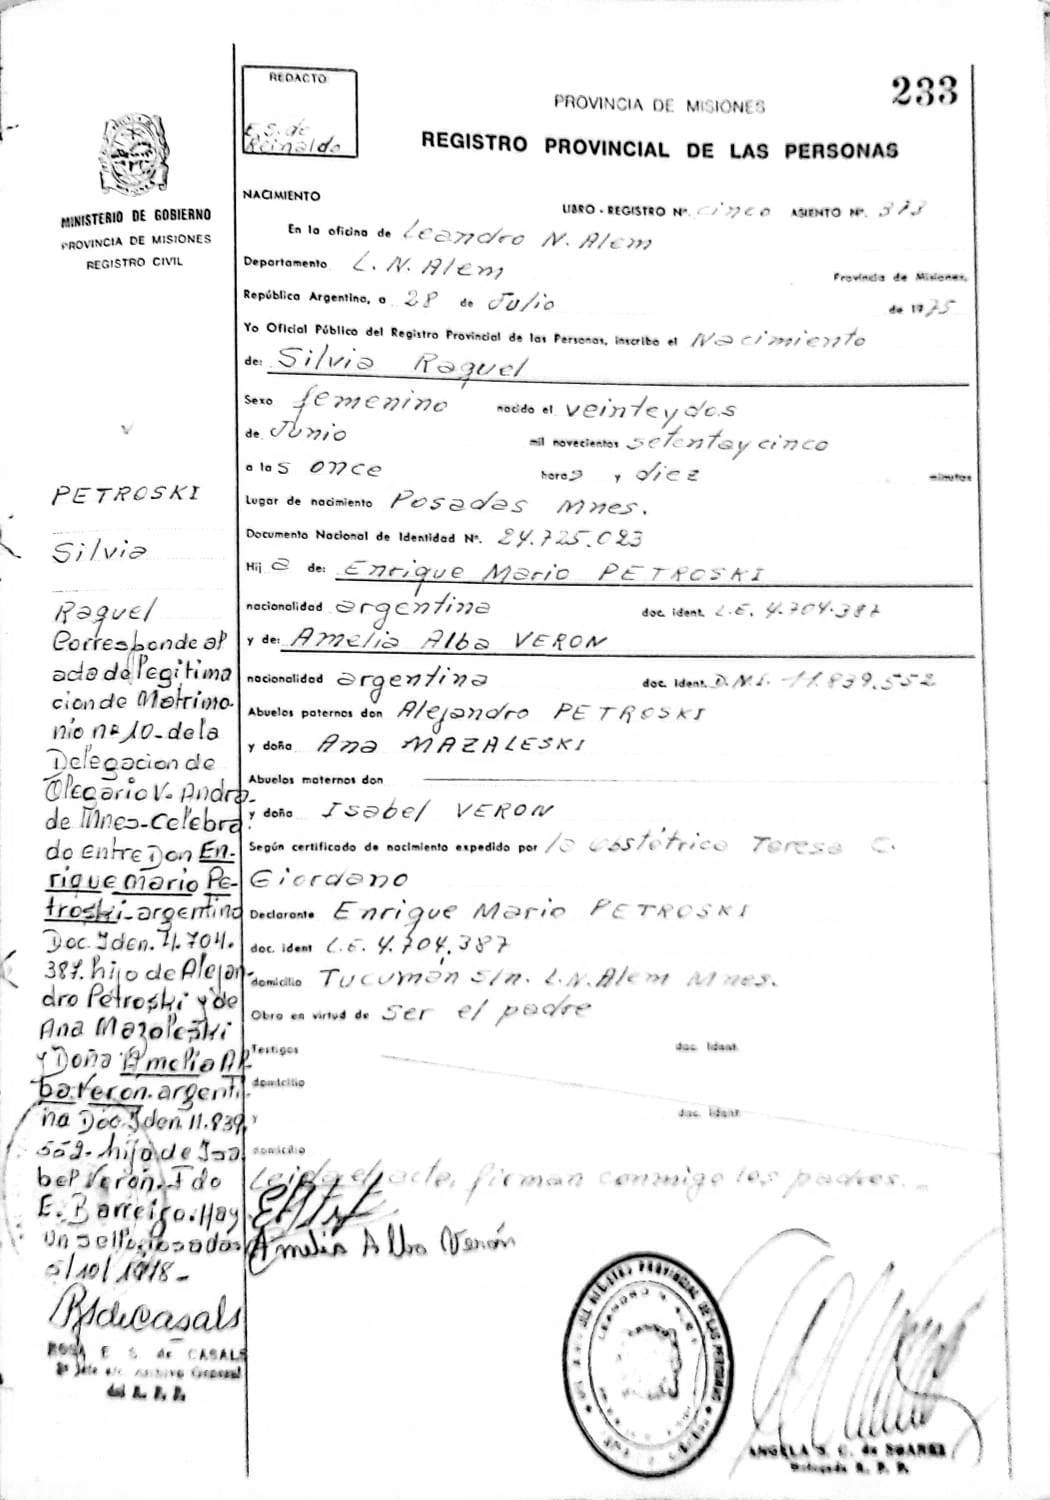 REDACTO
E.S. de
Reinaldo
233
PROVINCIA DE MISIONES
REGISTRO PROVINCIAL DE LAS PERSONAS
MINISTERIO DE GOBIERNO
PROVINCIA DE MISIONES
REGISTRO CIVIL
NACIMIENTO
LIBRO - REGISTRO Nº. cinco ASIENTO Nº. 373
En la oficina de Leandro N. Alem
Departamento L. N. Alem Provincia de Misiones,
República Argentina, a 28 de Julio de 1975
Yo Oficial Público del Registro Provincial de las Personas, inscribo el Nacimiento
de: Silvia Raquel
Sexo femenino nacido el veinteydos
de Junio mil novecientos setentaycinco
a las once horas y diez minutos
Lugar de nacimiento Posadas Mnes.
Documento Nacional de Identidad Nº. 24.725.023
Hija de: Enrique Mario PETROSKI
nacionalidad argentina doc. ident. L.E. 4.704.387
y de: Amelia Alba VERON
nacionalidad argentina doc. ident. D.N.I. 11.839.552
Abuelos paternos don Alejandro PETROSKI
y doña Ana MAZALESKI
Abuelos maternos don
y doña Isabel VERON
Según certificado de nacimiento expedido por la obstétrica Teresa C.
Giordano
Declarante Enrique Mario PETROSKI
doc. ident L.E. 4.704.387
domicilio Tucumán s/n. L.N. Alem Mnes.
Obra en virtud de ser el padre
Testigos doc. ident.
domicilio
y doc. ident
domicilio
Leida el acta, firman conmigo los padres.
Amelia Alba Verón
PETROSKI
Silvia
Raquel
Corresponde al
acta de legitima
cion de Matrimo-
nio nº 10 - de la
Delegacion de
Olegario V. Andra-
de Mnes - Celebra
do entre Don En-
rique Mario Pe-
troski - argentino
Doc. Iden. 4.704.
387. hijo de Alejan-
dro Petroski y de
Ana Mazoleski
y Doña Amelia Al-
ba Veron. argenti-
na Doc. Iden 11.839.
552 - hijo de Isa
bel Veron. Fdo
E. Barreiro. Hay
un sello. Posadas
5/10/1978 -
RSdeCasals
ROSA E S. de CASALS
del R. P. P.
LEANDRO N. ALEM
ANGELA S. C. de SUAREZ
Delegada R. P. P.